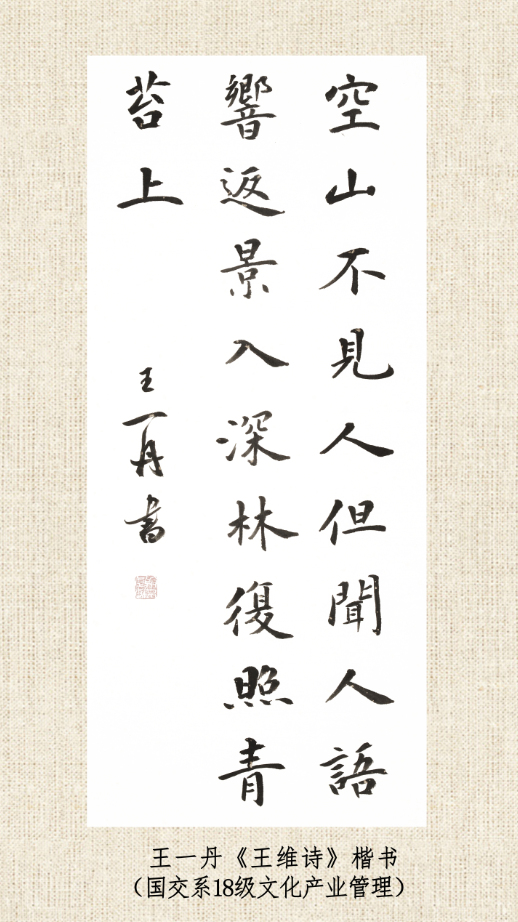 空山不見人但聞人語
響返景入深林復照青
苔上
王一丹書
王一丹《王维诗》楷书
（国交系18级文化产业管理）